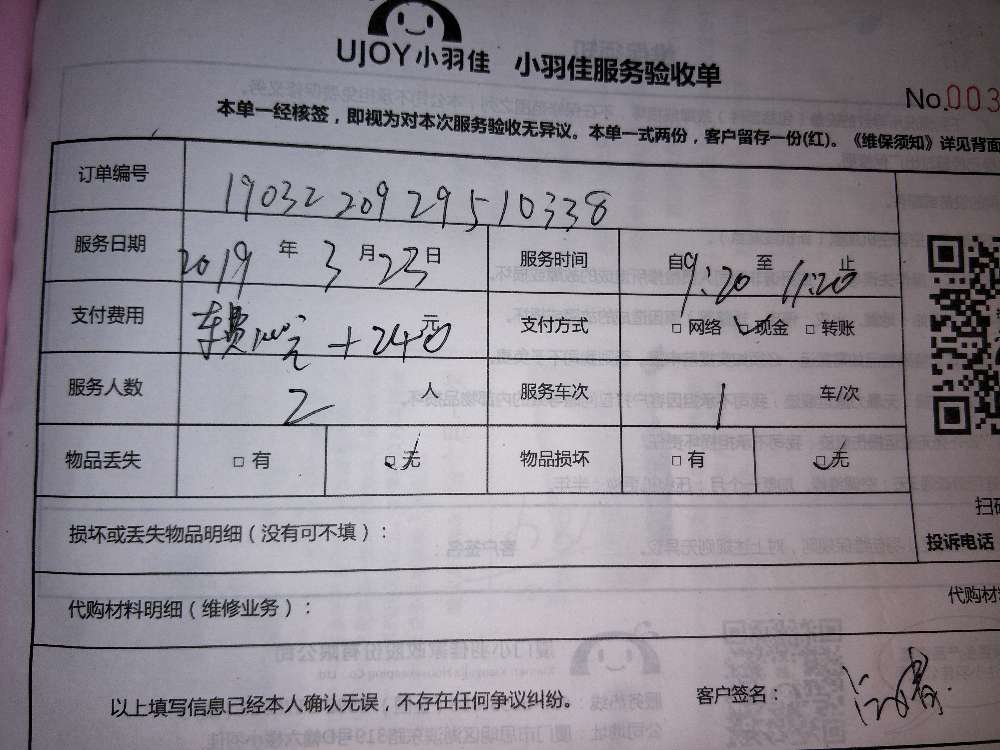 UJOY小羽佳 小羽佳服务验收单
No.003
本单一经核签，即视为对本次服务验收无异议。本单一式两份，客户留存一份(红)。《维保须知》详见背面
订单编号 1903220929510338
服务日期 2019 年 3 月 23 日 服务时间 自 9:20 至 11:20 止
支付费用 车费100元 + 240 元 支付方式 □ 网络 ☑ 现金 □ 转账
服务人数 2 人 服务车次 1 车/次
物品丢失 □ 有 ☑ 无 物品损坏 □ 有 ☑ 无
扫码
损坏或丢失物品明细（没有可不填）：
投诉电话
代购材料明细（维修业务）：
代购材
以上填写信息已经本人确认无误，不存在任何争议纠纷。 客户签名：